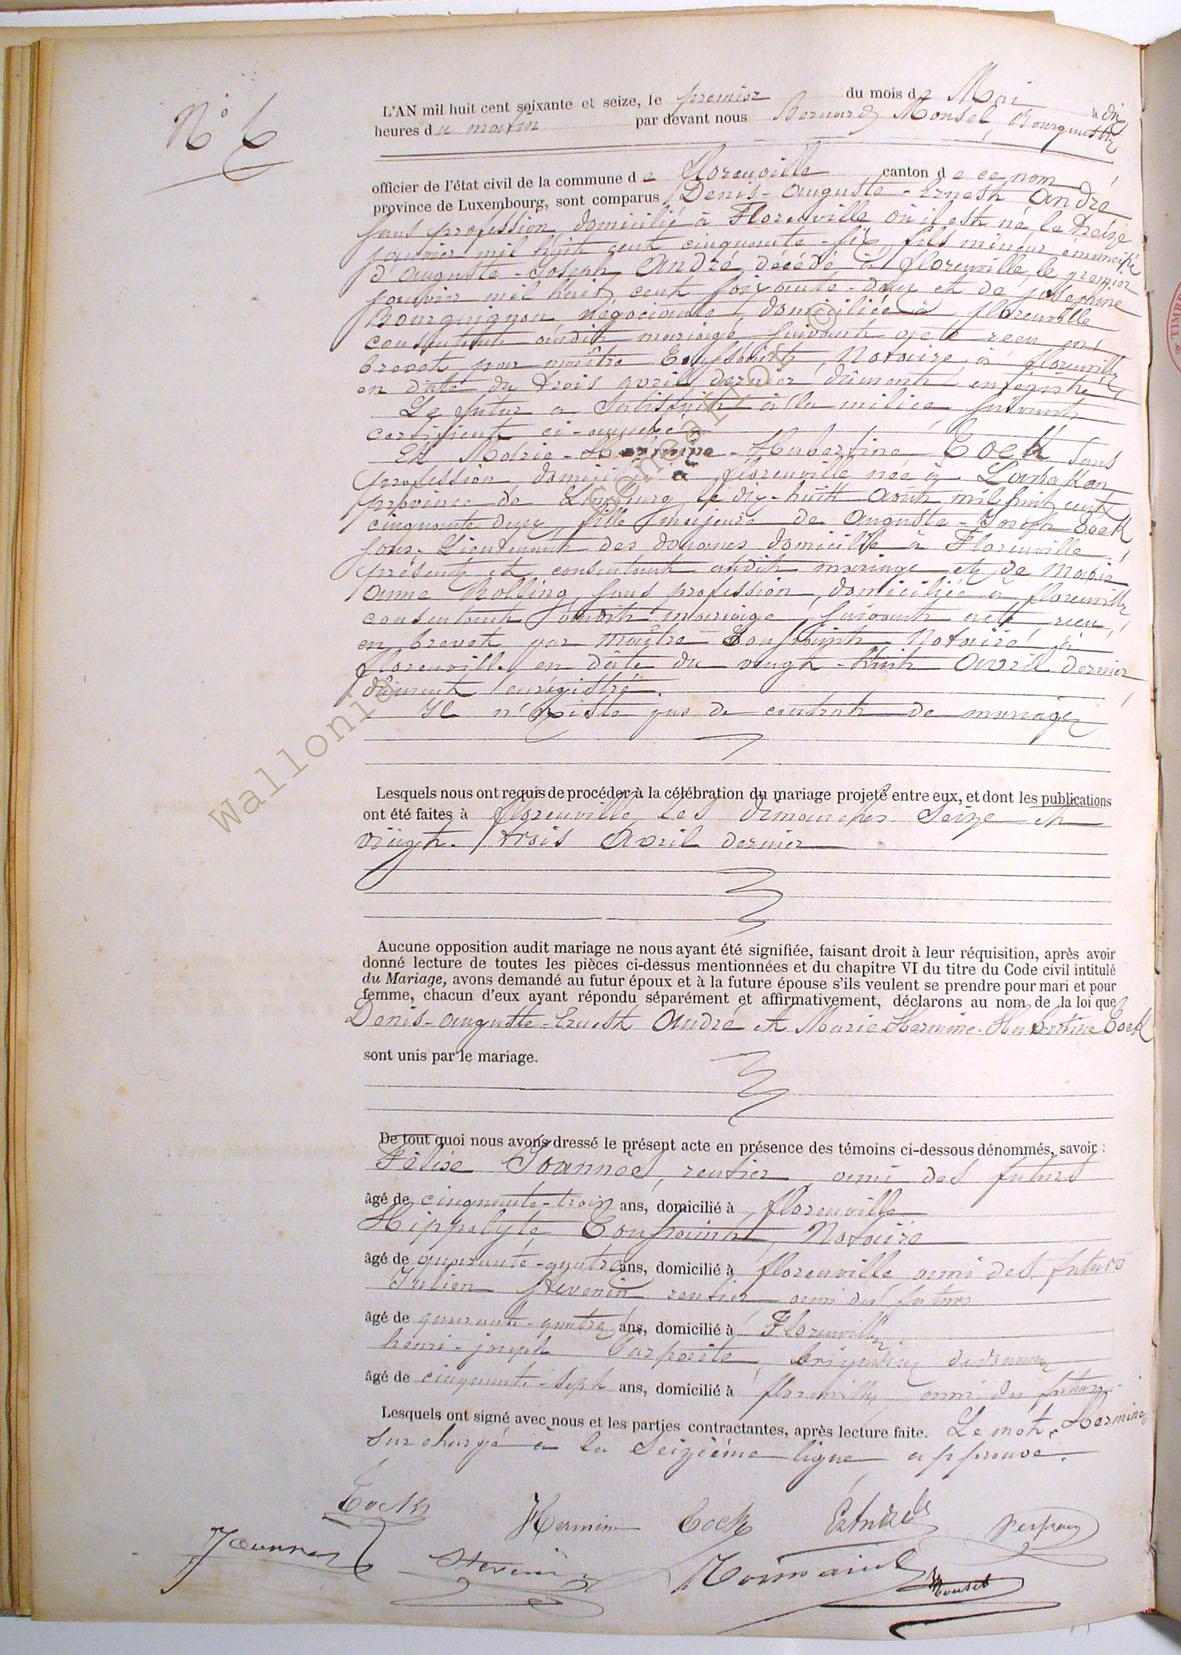 N° 6
L'AN mil huit cent soixante et seize, le premier du mois de Mai à dix
heures du matin par devant nous Bernard Monsel, Bourgmestre
officier de l'état civil de la commune de Florenville canton de ce nom
province de Luxembourg, sont comparus Denis-Auguste-Ernest André
sans profession, domicilié à Florenville où il est né le treize
janvier mil huit cent cinquante-six, fils mineur émancipé
d'Auguste-Joseph André, décédé à Florenville, le premier
janvier mil huit cent soixante-deux et de Joséphine
Bourguignon négociante, domiciliée à Florenville
consentant audit mariage suivant acte reçu en
brevet par maître Toussaint, Notaire à Florenville
en date du trois avril dernier, dûment enregistré
Le futur a satisfait à la milice suivant
certificat ci-annexé
Et Marie-Hermine-Hubertine Tock sans
profession, domiciliée à Florenville née à Lanaken
province de Limbourg, le dix-huit août mil huit cent
cinquante deux, fille majeure de Auguste-Joseph Tock
sous-Lieutenant des douanes domicilié à Florenville,
présent et consentant audit mariage et de Marie
Anne Rolling, sans profession, domiciliée à Florenville
consentant audit mariage, suivant acte reçu
en brevet par maître Toussaint, Notaire à
Florenville en date du vingt-huit avril dernier
dûment enregistré.
Il n'existe pas de contrat de mariage
Lesquels nous ont requis de procéder à la célébration du mariage projeté entre eux, et dont les publications
ont été faites à Florenville, les dimanches seize et
vingt-trois avril dernier
Aucune opposition audit mariage ne nous ayant été signifiée, faisant droit à leur réquisition, après avoir
donné lecture de toutes les pièces ci-dessus mentionnées et du chapitre VI du titre du Code civil intitulé
du Mariage, avons demandé au futur époux et à la future épouse s'ils veulent se prendre pour mari et pour
femme, chacun d'eux ayant répondu séparément et affirmativement, déclarons au nom de la loi que
Denis-Auguste-Ernest André et Marie-Hermine-Hubertine Tock
sont unis par le mariage.
De tout quoi nous avons dressé le présent acte en présence des témoins ci-dessous dénommés, savoir :
Joannes, rentier, ami des futurs
âgé de cinquante-trois ans, domicilié à Florenville
Hippolyte Toussaint, Notaire
âgé de quarante-quatre ans, domicilié à Florenville ami des futurs
Julien Stevenin rentier, ami des futurs
âgé de quarante-quatre ans, domicilié à Florenville.
henri-joseph
âgé de cinquante-sept ans, domicilié à Florenville ami des futurs.
Lesquels ont signé avec nous et les parties contractantes, après lecture faite. Le mot Hermine
surchargé à la seizième ligne approuvé.
Tock Hermine Tock
Joannes Stevenin Monsel
Wallonie
TIMBRE